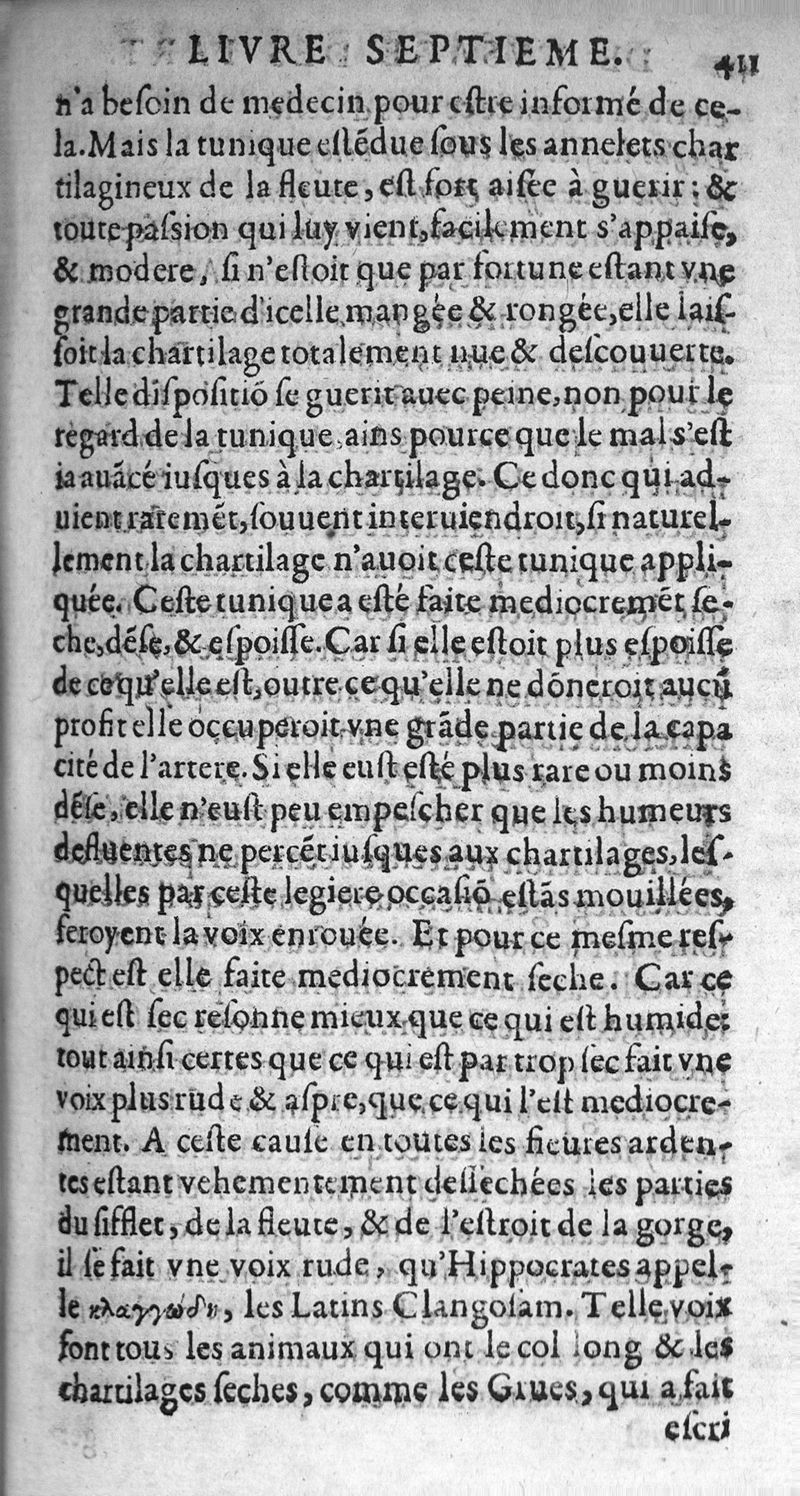 LIVRE SEPTIEME. 411
n'a beſoin de medecin pour eſtre informé de ce-
la. Mais la tunique eſtẽdue ſous les annelets char
tilagineux de la fleute, eſt fort aiſée à guerir: &
toute paſsion qui luy vient, facilement s'appaiſe,
& modere, ſi n'eſtoit que par fortune eſtant vne
grande partie d'icelle mangée & rongée, elle laiſ-
ſoit la chartilage totalement nue & deſcouuerte.
Telle diſpoſitiõ ſe guerit auec peine, non pour le
regard de la tunique, ains pource que le mal s'eſt
ia auãcé iuſques à la chartilage. Ce donc qui ad-
uient raremẽt, ſouuent interuiendroit, ſi naturel-
lement la chartilage n'auoit ceſte tunique appli-
quée. Ceſte tunique a eſté faite mediocremẽt ſe-
che, dẽſe, & eſpoiſſe. Car ſi elle eſtoit plus eſpoiſſe
de ce qu'elle eſt, outre ce qu'elle ne dõneroit aucũ
profit elle occuperoit vne grãde partie de la capa
cité de l'artere. Si elle euſt eſté plus rare ou moins
dẽſe, elle n'euſt peu empeſcher que les humeurs
defluentes ne percẽt iuſques aux chartilages, leſ-
quelles par ceſte legiere occaſiõ eſtãs mouillées,
feroyent la voix enrouée. Et pour ce meſme reſ-
pect eſt elle faite mediocrement ſeche. Car ce
qui eſt ſec reſonne mieux que ce qui eſt humide:
tout ainſi certes que ce qui eſt par trop ſec fait vne
voix plus rude & aſpre, que ce qui l'eſt mediocre-
ment. A ceſte cauſe en toutes les fieures arden-
tes eſtant vehementement deſſechées les parties
du ſifflet, de la fleute, & de l'eſtroit de la gorge,
il ſe fait vne voix rude, qu'Hippocrates appel-
le κλαγγώδη, les Latins Clangoſam. Telle voix
font tous les animaux qui ont le col long & les
chartilages ſeches, comme les Grues, qui a fait
eſcri